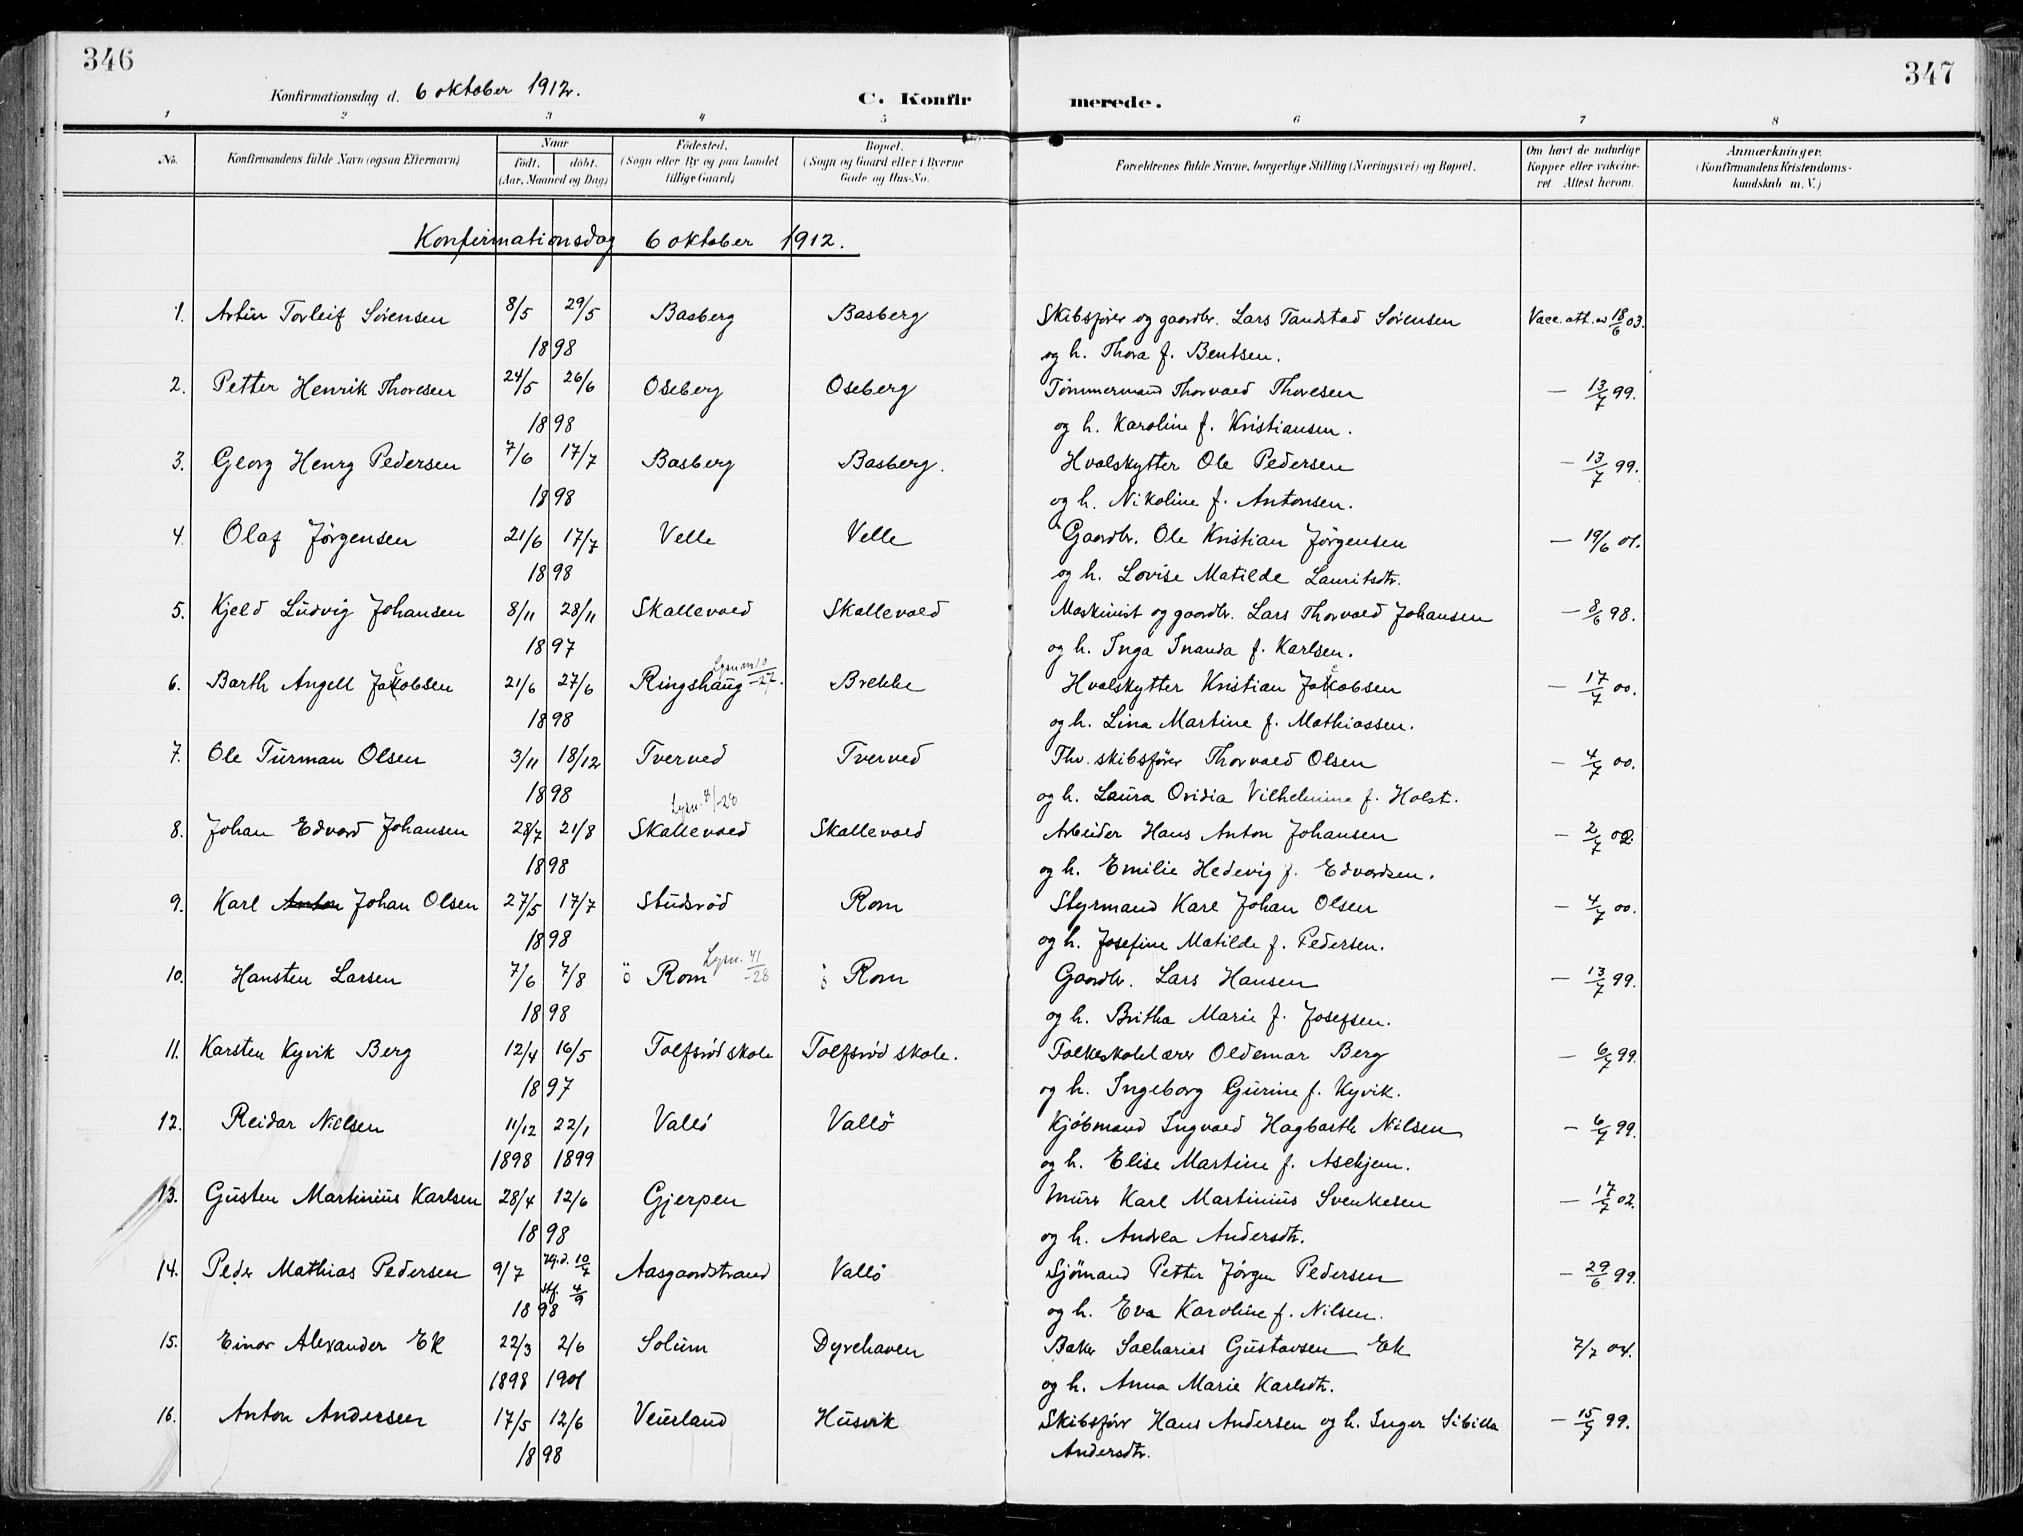 346
347
Konfirmationsdag d. 6 oktober 1912.
C. Konfirmerede.
1 2 3 4 5 6 7 8
No. Konfirmandens fulde Navn (ogsaa Efternavn) Naar født. døbt. (Aar, Maaned og Dag) Fødested. (Sogn eller By og paa Landet tillige Gaard) Bopæl. (Sogn og Gaard eller i Byerne Gade og Hus-No. Forældrenes fulde Navne, borgerlige Stilling (Næringsvei) og Bopæl. Om havt de naturlige Kopper eller vakcineret. Attest herom. Anmærkninger. (Konfirmandens Kristendomskundskab m. V.)
Konfirmationsdag 6 oktober 1912.
1. Artur Torleif Sørensen 8/5 29/5 Basberg Basberg Skibsfører og gaardbr. Lars Tandstad Sørensen Vacc. att. av 18/6 03.
1898 og h. Thora f. Bentsen.
2. Petter Henrik Thoresen 24/5 26/6 Oseberg Oseberg Tømmermand Thorvald Thoresen — 13/7 99.
1898 og h. Karoline f. Kristiansen.
3. Georg Henry Pedersen 7/6 17/7 Basberg Basberg. Hvalskytter Ole Pedersen — 13/7 99.
1898 og h. Nikoline f. Antonsen.
4. Olaf Jørgensen 21/6 17/7 Velle Velle Gaardbr. Ole Kristian Jørgensen — 19/6 01.
1898 og h. Lovise Matilde Lauritsdtr.
5. Kjeld Ludvig Johansen 8/11 28/11 Skallevold Skallevold Maskinist og gaardbr. Lars Thorvald Johansen — 8/6 98.
1897 og h. Inga Inanda f. Karlsen.
6. Barth Angell Jacobsen 21/6 27/6 Ringshaug Brekke Hvalskytter Kristian Jacobsen — 17/7 00.
1898 og h. Lina Martine f. Mathiassen.
7. Ole Turman Olsen 3/11 18/12 Tverved Tverved Fhv. skibsfører Thorvald Olsen — 4/7 00.
1898 og h. Laura Ovidia Vilhelmine f. Holst.
8. Johan Edvard Johansen 28/7 21/8 Skallevold Skallevold Arbeider Hans Anton Johansen — 2/7 02.
1898 og h. Emilie Hedevig f. Edvardsen.
9. Karl Anton Johan Olsen 27/5 17/7 Studsrød Rom Styrmand Karl Johan Olsen — 4/7 00.
1898 og h. Josefine Matilde f. Pedersen.
10. Hansten Larsen 7/6 7/8 ö Rom Lysn. 41/-28 ö Rom Gaardbr. Lars Hansen — 13/7 99.
1898 og h. Britha Marie f. Josefsen.
11. Karsten Kyvik Berg 12/4 16/5 Tolfsrød skole Tolfsrød skole. Folkeskolelærer Oldemar Berg — 6/7 99.
1897 og h. Ingeborg Gurine f. Kyvik.
12. Reidar Nielsen 11/12 22/1 Vallö Vallö Kjøbmand Ingvald Hagbarth Nilsen — 6/7 99.
1898 1899 og h. Elise Martine f. Askjem.
13. Gusten Martinius Karlsen 28/4 12/6 Gjerpen Murer Karl Martinius Svenkesen — 17/7 02.
1898 og h. Andrea Andersdtr.
14. Peder Mathias Pedersen 9/7 Hj.d. 10/7 Aasgaardstrand Vallö Sjömand Petter Jørgen Pedersen — 29/6 99.
Stf. 4/9
1898 og h. Eva Karoline f. Nilsen.
15. Einar Alexander Ek 22/3 2/6 Solum Dyrehaven Baker Sacharias Gustavsen Ek 7/7 04.
1898 1901 og h. Anna Marie Karlsdtr.
16. Anton Andersen 17/5 12/6 Veierland Husvik Skibsfører Hans Andersen og h. Inger Sibilla — 15/7 99.
1898 Andersdtr.